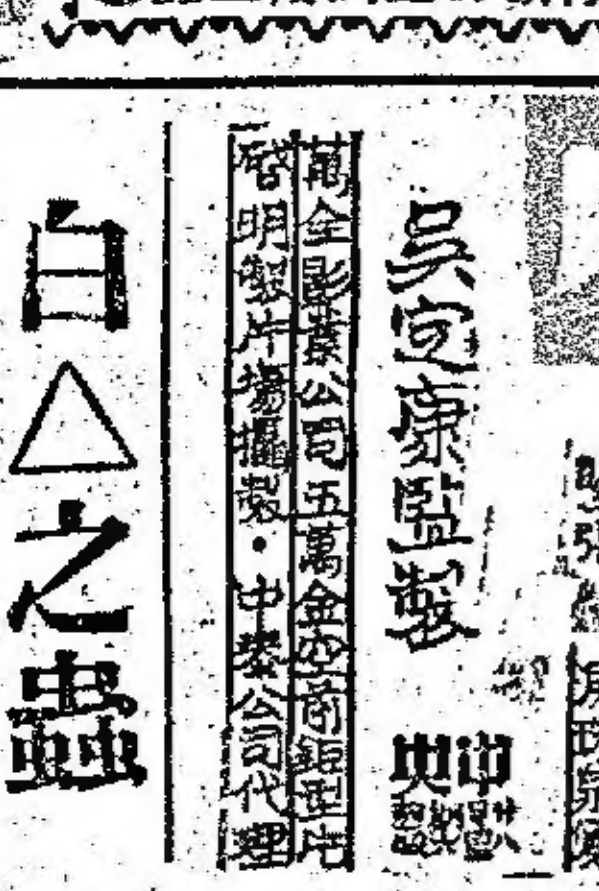 吳定康監製
中央
萬全影業公司五萬金空前鉅型片
啓明製片場攝製・中泰公司代理
白△之蟲